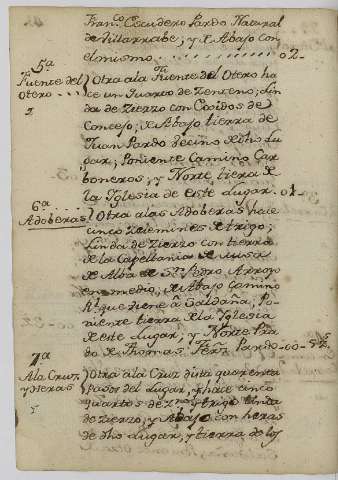 Fran.co Escudero Pardo Natural
de Villarrabe; y Abajo con
el mismo . . . . . . . . . . . 02-
5ª
Fuente del
Otero . . .
Otra a la Fuente del Otero ha
ce un Quarto de Zenteno; Lin
da de Zierzo con Exidos de
Concejo; Abajo tierra de
Juan Pardo vecino de dho Lu
gar; Poniente Camino Car
boneros; y Norte tierra de
la Yglesia de este Lugar. 01-
6ª
Adoberas
Otra a las Adoberas hace
cinco Zelemines de trigo;
Linda de Zierzo con tierra
de la Capellania de
de Alba de Sn Pedro, Arroyo
en medio; de Abajo Camino
Rl que viene â Saldaña; Po
niente tierra de la Yglesia
de este Lugar; y Norte Pra
do de Thomas Ferz Pardo-00-5
7ª
A la Cruz,
y heras
Otra a la Cruz dista quarenta
pasos del Lugar, y hace cinco
quartos de trigo linda
de Zierzo, y Abajo con heras
de dho Lugar, y tierra de los